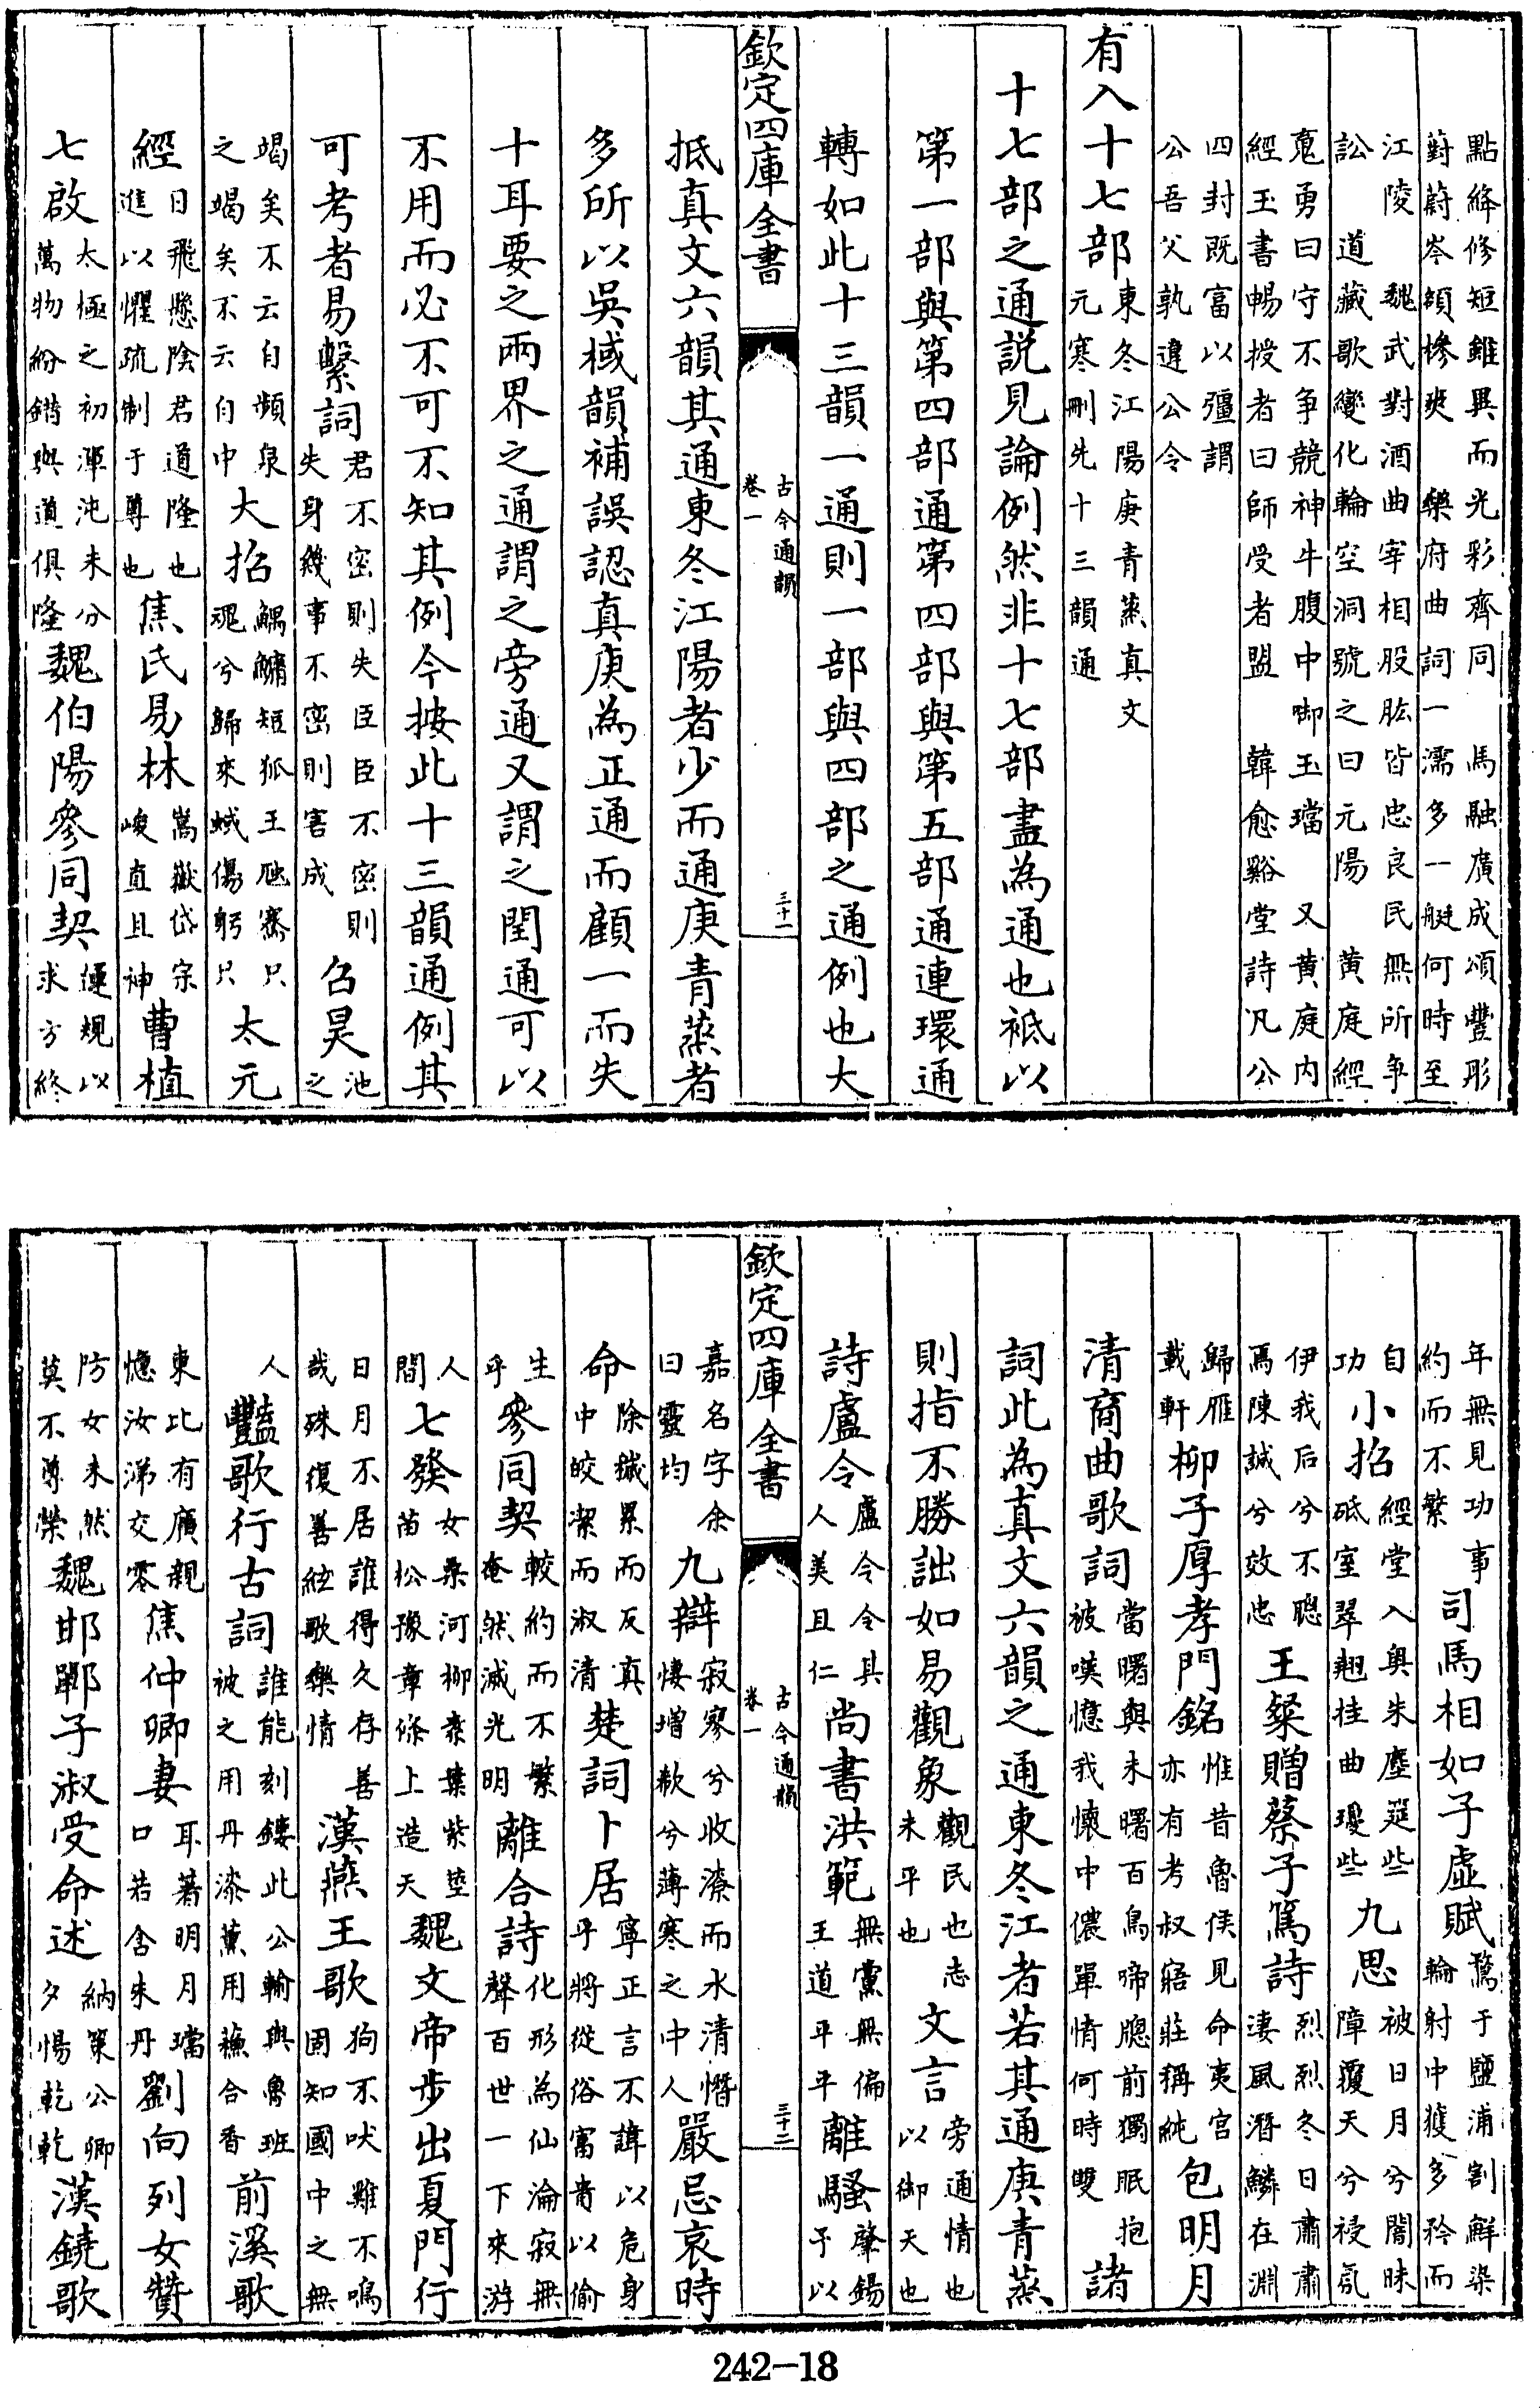 點絳修短雖異而光彩齊同　馬融廣成頌豐彤
薱蔚岑頟槮爽　樂府曲詞一濡多一艇何時至
江陵　魏武對酒曲宰相股肱皆忠良民無所争
訟　道藏歌變化輪空洞號之曰元陽　黄庭經
䰟勇曰守不争競神牛腹中啣玉璫　又黄庭内
經玉書暢授者曰師受者盟　韓愈谿堂詩凡公
四封既富以彊謂
公吾父孰違公令
有入十七部 東冬江陽庚青蒸真文 元寒刪先十三韻通
十七部之通説見論例然非十七部盡為通也祗以
第一部與第四部通第四部與第五部通連環通
轉如此十三韻一通則一部與四部之通例也大
欽定四庫全書 古今通韻 卷一 三十一
抵真文六韻其通東冬江陽者少而通庚青蒸者
多所以吳棫韻補誤認真庚為正通而顧一而失
十耳要之兩界之通謂之旁通又謂之閏通可以
不用而必不可不知其例今按此十三韻通例其
可考者易繫詞 君不密則失臣臣不密則 失身幾事不密則害成 召旻 池 之
竭矣不云自頻泉 之竭矣不云自中 大招 鰅鱅短狐王虺騫只 魂兮歸來蜮傷躬只 太元
經 日飛懸陰君道隆也 進以懼疏制于尊也 焦氏易林 嵩嶽岱宗 峻直且神 曹植
七啟 太極之初渾沌未分 萬物紛錯與道俱隆 魏伯陽參同契 運規以 求方終
年無見功事 約而不繁 司馬相如子虛賦 鶩于鹽浦割鮮染 輪射中獲多矜而
自 功 小招 經堂入奥朱塵筵些 砥室翠翹挂曲瓊些 九思 被日月兮闇昧 障覆天兮祲氛
伊我后兮不聰 焉陳誠兮效忠 王粲贈蔡子篤詩 烈烈冬日肅肅 淒風潛鱗在淵
歸雁 載軒 柳子厚孝門銘 惟昔魯侯見命夷宫 亦有考叔寤莊稱純 包明月
清商曲歌詞 當曙與未曙百鳥啼牕前獨眠抱 被嘆憶我懷中儂單情何時雙 諸
詞此為真文六韻之通東冬江者若其通庚青蒸
則指不勝詘如易觀象 觀民也志 未平也 文言 旁通情也 以御天也
詩盧令 盧令令其 人美且仁 尚書洪範 無黨無偏 王道平平 離騷 肇錫 予以
欽定四庫全書 古今通韻 卷一 三十二
嘉名字余 曰靈均 九辯 寂寥兮收潦而水清憯 悽增欷兮薄寒之中人 嚴忌哀時
命 除穢累而反真 中皎潔而淑清 楚詞卜居 寧正言不諱以危身 乎將從俗富貴以偷
生 乎 參同契 較約而不繁 奄然滅光明 離合詩 化形為仙淪寂無 聲百世一下來游
人 間 七發 女桑河柳素葉紫莖 苗松豫章條上造天 魏文帝步出夏門行
日月不居誰得久存善 哉殊復善絃歌樂情 漢燕王歌 狗不吠雞不鳴 固知國中之無
人 豔歌行古詞 誰能刻鏤此公輸與魯班 被之用丹漆薰用蘇合香 前溪歌
東比有廣親 憶汝涕交零 焦仲卿妻 耳著明月璫 口若含朱丹 劉向列女贊
防女未然 莫不尊榮 魏邯鄲子淑受命述 納策公卿 夕惕乾乾 漢鐃歌
242-18